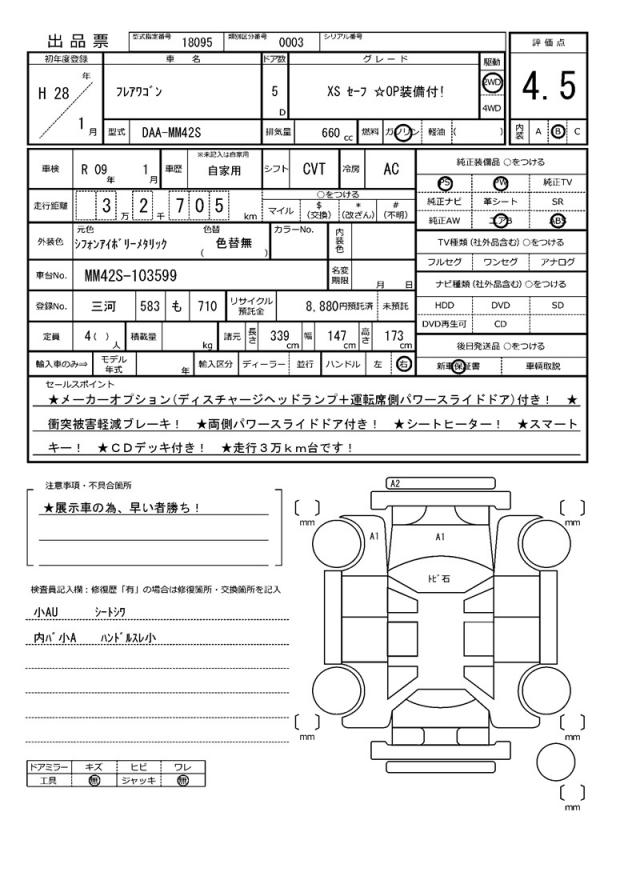 出品票 型式指定番号 18095 類別区分番号 0003 シリアル番号
初年度登録 車名 ドア数 グレード 駆動 評価点
H 28 年 1 月 フレアワゴン 5 D XS セーフ ☆OP装備付! 2WD 4WD 4.5
型式 DAA-MM42S 排気量 660 cc 燃料 ガソリン 軽油 ( ) 内装 A B C
車検 R 09 年 1 月 車歴 ※未記入は自家用 自家用 シフト CVT 冷房 AC 純正装備品 ○をつける
PS PW 純正TV
走行距離 3 万 2 千 7 0 5 km ○をつける
マイル $(交換) *(改ざん) #(不明)
純正ナビ 革シート SR
純正AW エアB ABS
外装色 元色 シフォンアイボリーメタリック 色替 ( 色替無 ) カラーNo. 内装色
TV種類(社外品含む)○をつける
フルセグ ワンセグ アナログ
車台No. MM42S-103599 名変期限 月 日
ナビ種類(社外品含む)○をつける
登録No. 三河 583 も 710 リサイクル預託金 8,880円預託済 未預託
HDD DVD SD
DVD再生可 CD
定員 4( )人 積載量 kg 諸元 長さ 339 cm 幅 147 cm 高さ 173 cm
後日発送品 ○をつける
輸入車のみ⇒ モデル年式 年 輸入区分 ディーラー 並行 ハンドル 左 右
新車保証書 車輌取説
セールスポイント
★メーカーオプション(ディスチャージヘッドランプ+運転席側パワースライドドア)付き! ★
衝突被害軽減ブレーキ! ★両側パワースライドドア付き! ★シートヒーター! ★スマート
キー! ★CDデッキ付き! ★走行3万km台です!
注意事項・不具合箇所
★展示車の為、早い者勝ち!
検査員記入欄:修復歴「有」の場合は修復箇所・交換箇所を記入
小AU シートシワ
内バ小A ハンドルスレ小
ドアミラー キズ ヒビ ワレ
工具 無 ジャッキ 無
A2
A1
A1
トビ石
mm
mm
mm
mm
mm